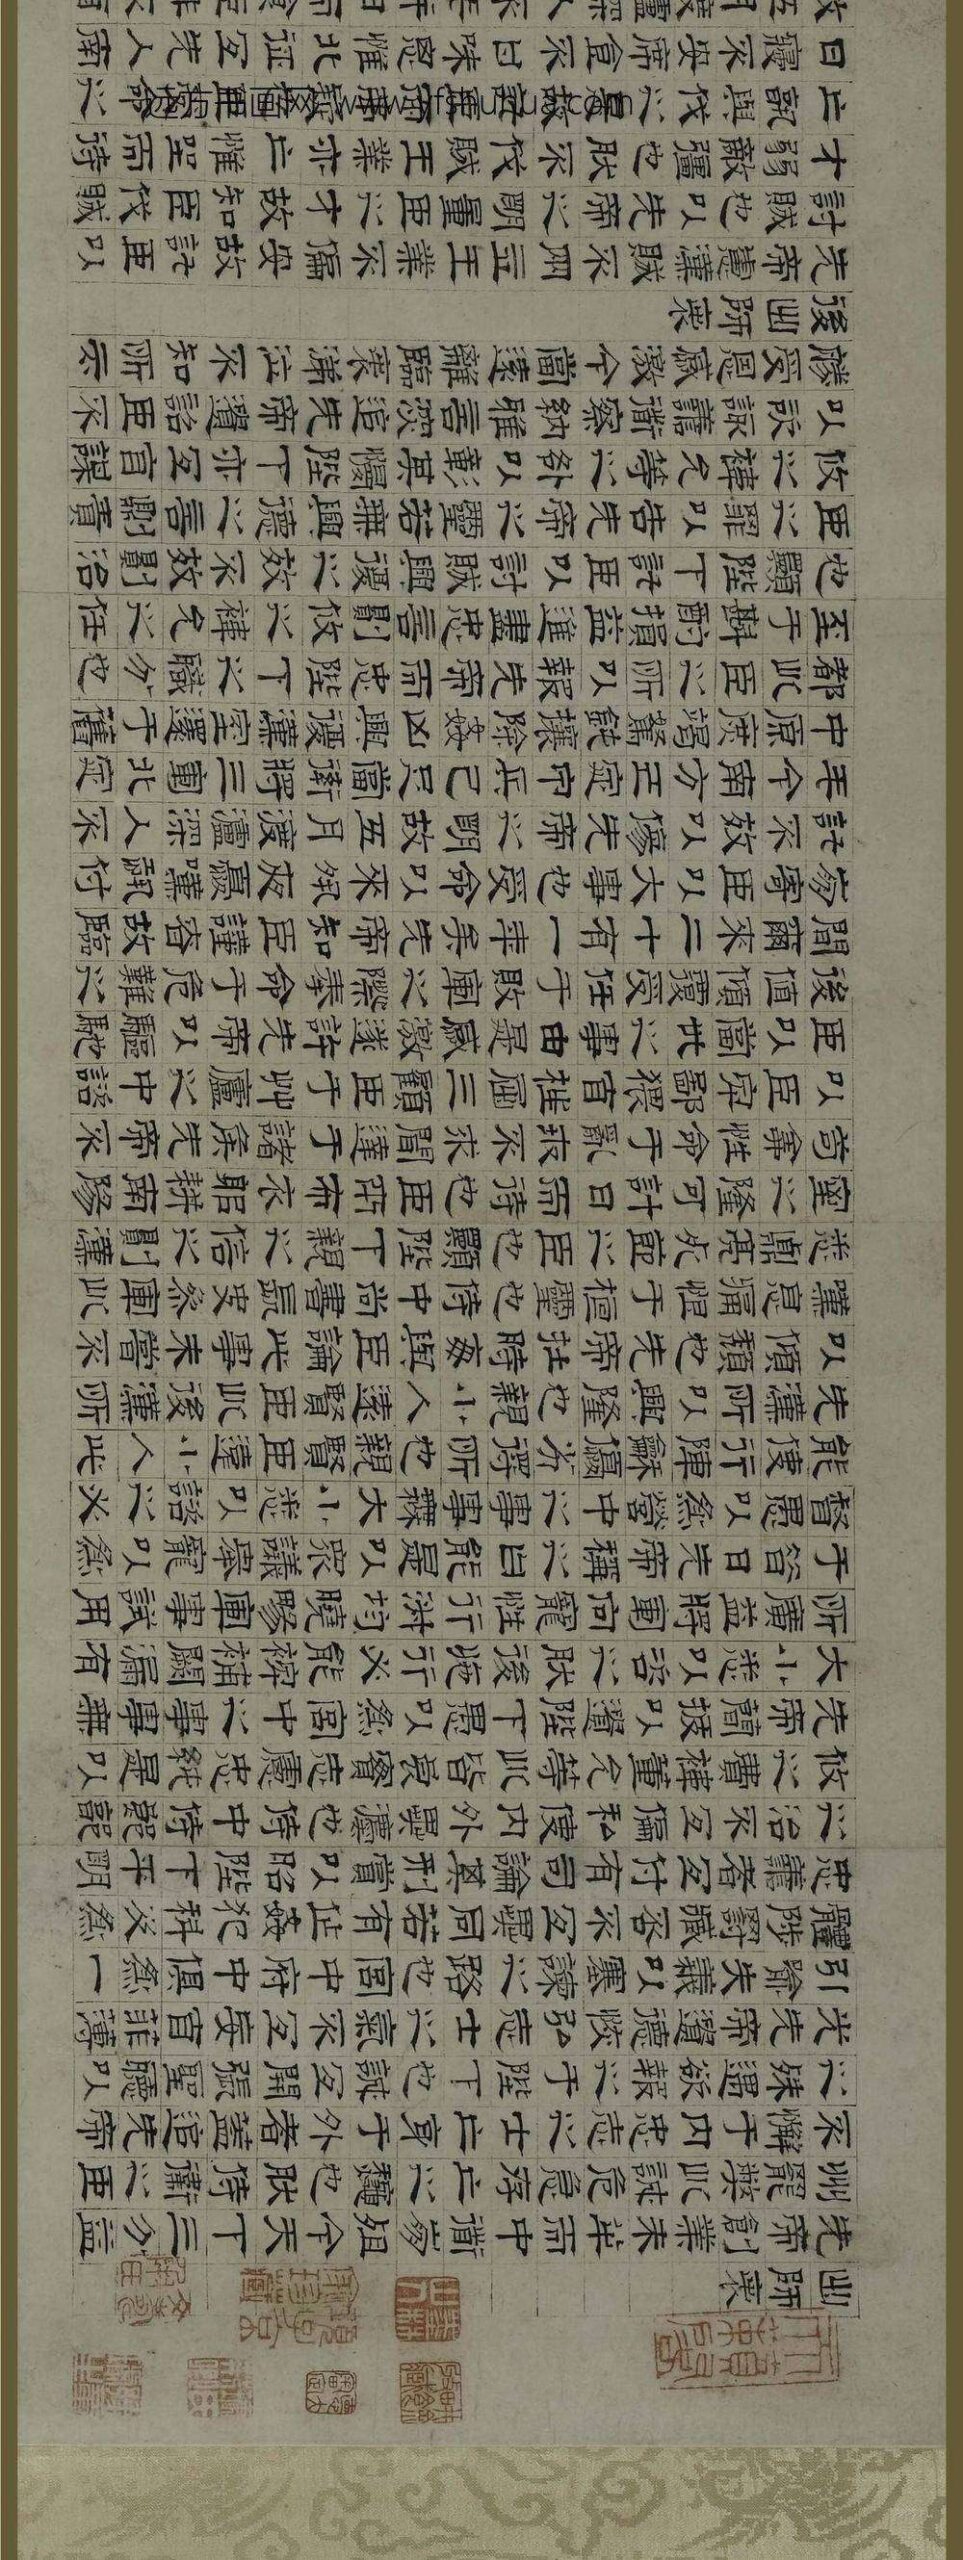 出師表
先帝創業未半而中道崩殂今天下三分益
州罷弊此誠危急存亡之秋也然侍衛之臣
不懈于內忠志之士亡身于外者蓋追先帝
之殊遇欲報之于陛下也誠宜開張聖聽以
光先帝遺德恢弘志士之氣不宜妄自菲薄
引喻失義以塞諫之路也宮中府中俱為一
體陟罰臧否不宜異同若有作姦犯科及為
忠善者宜付有司論其刑賞以昭陛下平明
之治不宜偏私使內外異法也侍中侍郎郭
攸之費禕董允等此皆良實志慮忠純是以
先帝簡拔以遺陛下愚以為宮中之事事無
大小悉以咨之然後施行必能裨補闕漏有
所廣益將軍向寵性行淑均曉暢軍事試用
于昔日先帝稱之曰能是以眾議舉寵以為
督愚以為營中之事事無大小悉以諮之必
能使行陣和穆優劣得所也親賢臣遠小人此
先漢所以興隆也親小人遠賢臣此後漢所
以傾頹也先帝在時每與臣論此事未嘗不
嘆息痛恨于桓靈也侍中尚書長史參軍此
悉貞亮死節之臣也願陛下親之信之則漢
室之隆可計日而待也臣本布衣躬耕南陽
苟全性命于亂世不求聞達于諸侯先帝不
以臣卑鄙猥自枉屈三顧臣于草廬之中諮
臣以當世之事由是感激遂許先帝以驅馳
後值傾覆受任于敗軍之際奉命于危難之
間爾來二十有一年矣先帝知臣謹慎故臨
崩寄臣以大事也受命以來夙夜憂嘆恐付
託不效以傷先帝之明故五月渡瀘深入不
毛今南方已定甲兵已足當獎將三軍北定
中原庶竭駑鈍攘除姦凶興復漢室還于舊
都此臣之所以報先帝而忠陛下之職分也
至于斟酌損益進盡忠言則攸之禕允之任
也願陛下託臣以討賊興復之效不效則治
臣之罪以告先帝之靈若無興德之言則責
攸之禕允等之咎以彰其慢陛下亦宜自謀
以諮諏善道察納雅言深追先帝遺詔臣不
勝受恩感激今當遠離臨表涕泣不知所云
後出師表
先帝慮漢賊不兩立王業不偏安故託臣以
討賊也以先帝之明量臣之才故知臣伐賊
才弱敵彊也然不伐賊王業亦亡惟坐而待
亡孰與伐之是故託臣而弗疑也臣受命之
日寢不安席食不甘味思惟北征宜先入南